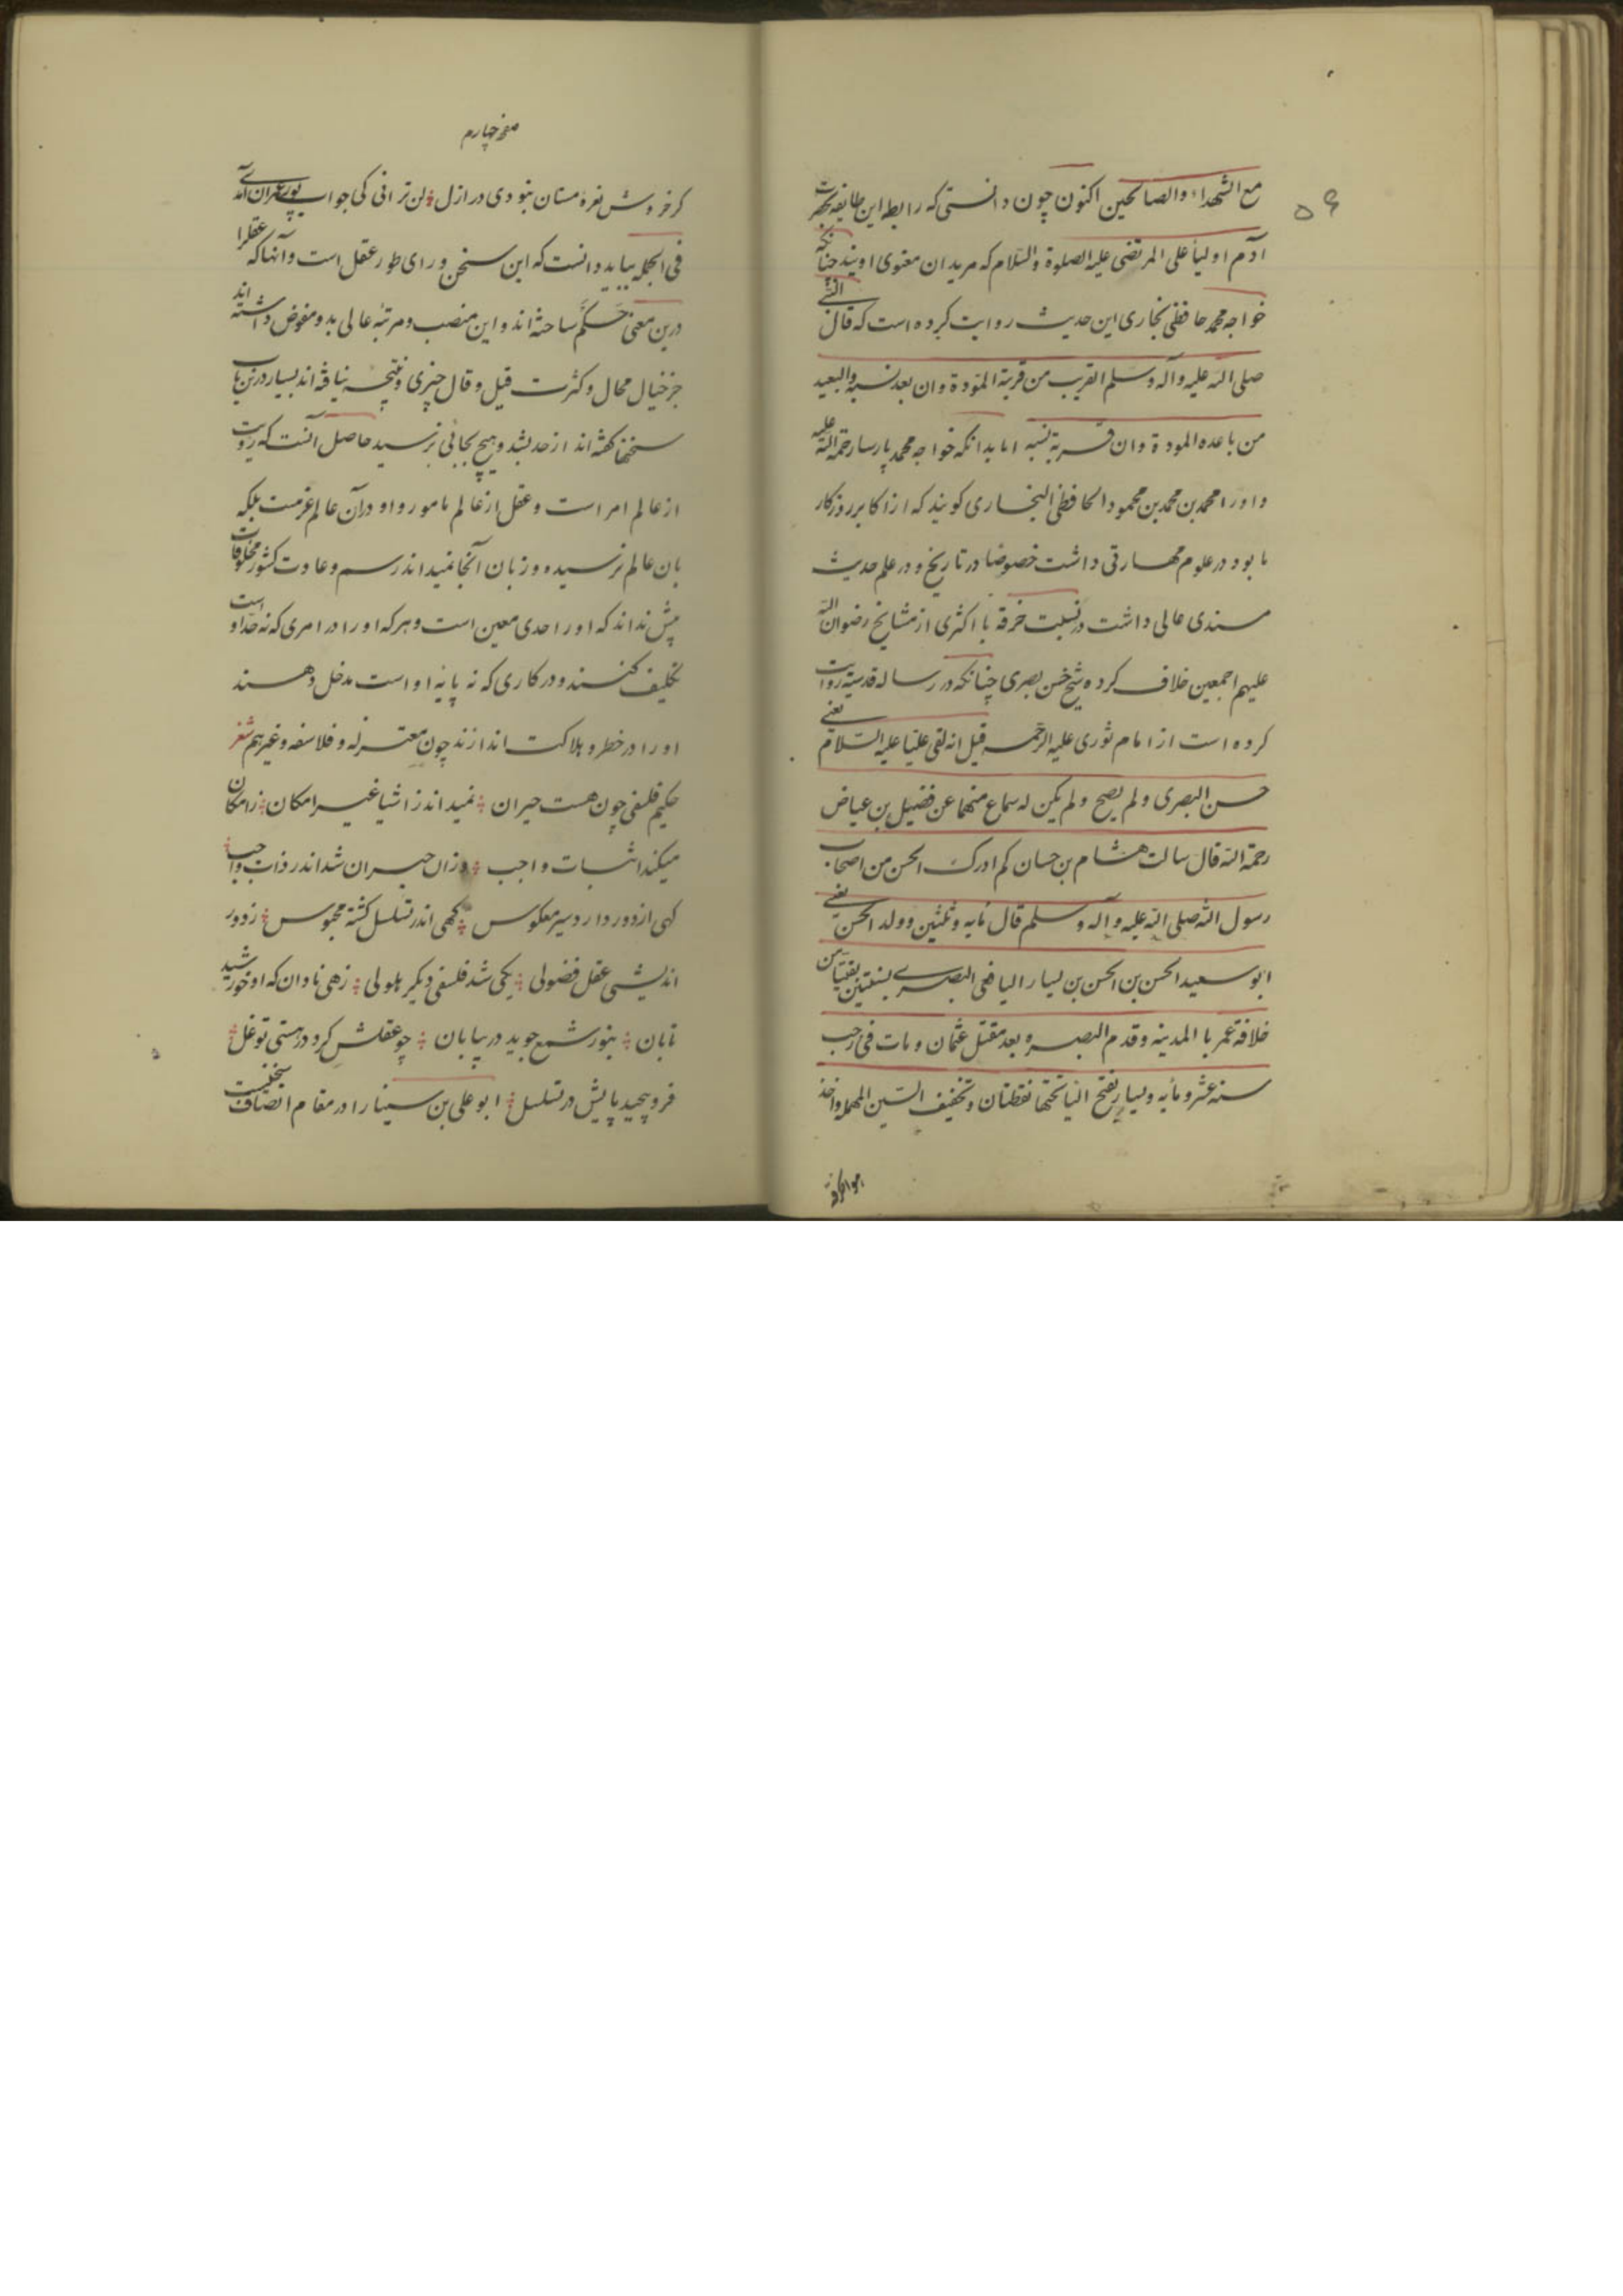 ۵۶
مع الشهداء والصالحین اکنون چون دانستی که رابطه این طایفه بحضرت
آدم اولیا علی المرتضی علیه الصلوة والسلام که مریدان معنوی اویند چنانکه
خواجه محمد حافظی بخاری این حدیث روایت کرده است که قال النبی
صلی الله علیه وآله وسلم القریب من قربة المودة وان بعد نسبه والبعید
من باعده المودة وان قربة نسبه اما بدانکه خواجه محمد پارسا رحمة الله علیه
و اورا محمد بن محمد بن محمود الحافظی البخاری کویند که از اکابر روزکار
ما بود در علوم مهارتی داشت خصوصا در تاریخ و در علم حدیث
سندی عالی داشت در نسبت خرقه با اکثری از مشایخ رضوان الله
علیهم اجمعین خلاف کرده شیخ حسن بصری چنانکه در رساله قدسیه روایت
کرده است از امام نوری علیه الرحمه قیل انه لقی علیا علیه السلام یعنی
حسن البصری ولم یصح ولم یکن له سماع منهما عن فضیل بن عیاض
رحمة الله قال سالت هشام بن حسان کم ادرک الحسن من اصحاب
رسول الله صلی الله علیه وآله وسلم قال مایه وثلثین وولد الحسن یعنی
ابو سعید الحسن بن الحسن بن لیسار البصری لسنتین بقیتا من
خلافة عمر با المدینه وقدم البصره بعد مقتل عثمان ومات فی رجب
سنه عشر ومایه ویسار بفتح الیا تحتها نقطتان وتخفیف السین المهمله واخذ
صفحه چهارم
کر خروش نعرهٔ مستان نبودی در ازل ؞ لن ترانی کی جواب پور عمران آمدی
فی الجمله بباید دانست که این سخن ورای طور عقل است وآنها که عقلرا
درین معنی حکم ساخته اند و این منصب و مرتبه عالی بدو مفوض داشته اند
جز خیال محال و کثرت قیل و قال چیزی و نتیجه نیافته اند بسیار درین باب
سخنها کفته اند از حد بشد و هیچ بجائی نرسید حاصل آنست که رویت
از عالم امر است و عقل از عالم مامور و او در آن عالم غرمست بلکه
بان عالم نرسیده و زبان آنجا نمیداند رسم و عادت کشور مخلوقات
بیش نداند که اورا حدی معین است و هر که اورا در امری که نه حد او است
تکلیف کنند و در کاری که نه پایه او است مدخل دهند
اورا در خطر و هلاکت اندازند چون معتزله و فلاسفه و غیرهم شعر
حکیم فلسفی چون هست حیران ؞ نمیداند ز اشیا غیر امکان ؞ ز امکان
میکند اثبات واجب ؞ وزان حیران شد اندر ذات واجب ؞
کهی از دور دارد سیر معکوس ؞ کهی اندر تسلسل کشته محبوس ؞ ز دور
اندیشی عقل فضولی ؞ یکی شد فلسفی دیکر حلولی ؞ زهی نادان که او خورشید
تابان ؞ بنور شمع جوید در بیابان ؞ چو عقلش کرد در هستی توغل ؞
فرو پیچید پایش در تسلسل ؞ ابو علی بن سینا را در مقام انصاف